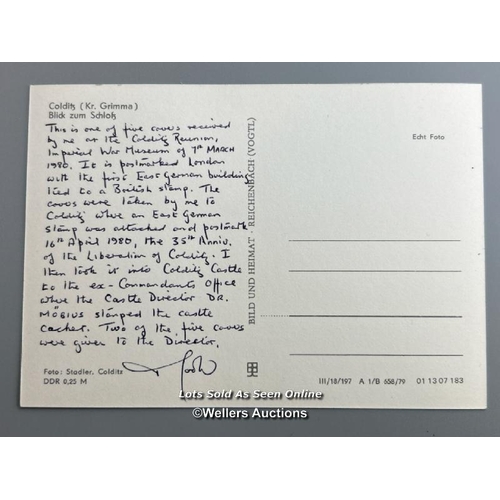 Colditz (Kr. Grimma)
Blick zum Schloß
This is one of five covers received
by me at the Colditz Reunion,
Imperial War Museum of 7th MARCH
1980. It is postmarked London
with the first East German building
tied to a British stamp. The
covers were taken by me to
Colditz where an East German
stamp was attached and postmark
16th April 1980, the 35th Anniv.
of the Liberation of Colditz. I
then took it into Colditz Castle
to the ex-Commandants Office
where the Castle Director DR.
MÖBIUS stamped the castle
cachet. Two of the five covers
were given to the Director.
Foto: Stadler, Colditz
DDR 0,25 M
BILD UND HEIMAT · REICHENBACH (VOGTL)
Echt Foto
III/18/197 A 1/B 658/79 01 13 07 183
Lots Sold As Seen Online
©Wellers Auctions